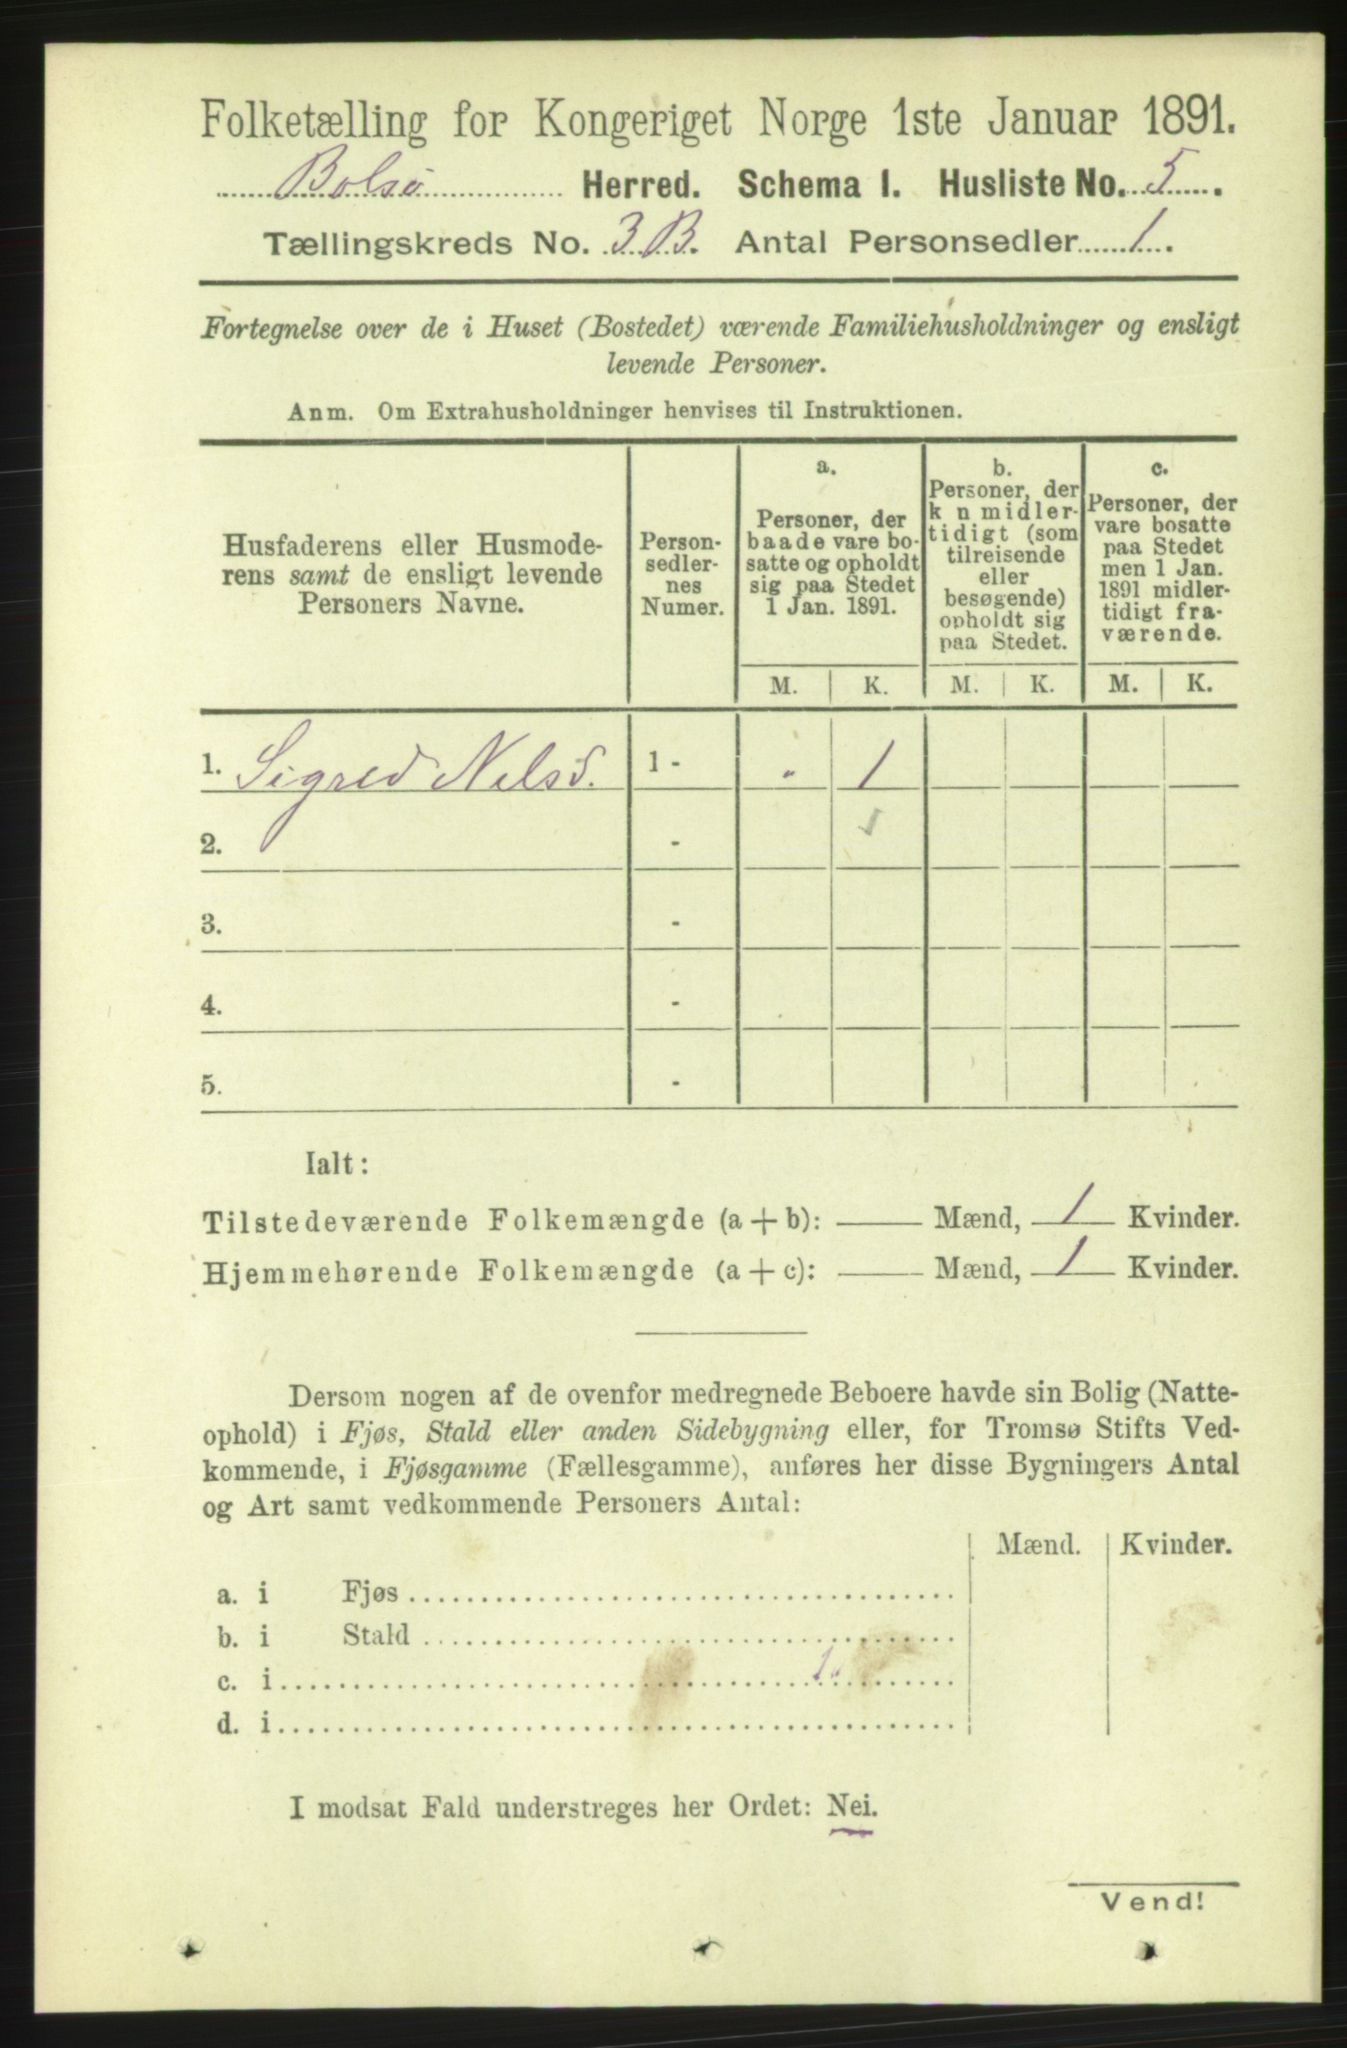 Folketælling for Kongeriget Norge 1ste Januar 1891.
Bolsø Herred. Schema I. Husliste No. 5.
Tællingskreds No. 3 B. Antal Personsedler 1.
Fortegnelse over de i Huset (Bostedet) værende Familiehusholdninger og ensligt
levende Personer.
Anm. Om Extrahusholdninger henvises til Instruktionen.
Husfaderens eller Husmode-
rens samt de ensligt levende
Personers Navne.
Person-
sedler-
nes
Numer.
a.
Personer, der
baade vare bo-
satte og opholdt
sig paa Stedet
1 Jan. 1891.
b.
Personer, der
k n midler-
tidigt (som
tilreisende
eller
besøgende)
opholdt sig
paa Stedet.
c.
Personer, der
vare bosatte
paa Stedet
men 1 Jan.
1891 midler-
tidigt fra-
værende.
M. K. M. K. M. K.
1. Sigred Nelsd. 1 - " 1
2. -
3. -
4. -
5. -
Ialt:
Tilstedeværende Folkemængde (a + b): Mænd, 1 Kvinder.
Hjemmehørende Folkemængde (a + c): Mænd, 1 Kvinder.
Dersom nogen af de ovenfor medregnede Beboere havde sin Bolig (Natte-
ophold) i Fjøs, Stald eller anden Sidebygning eller, for Tromsø Stifts Ved-
kommende, i Fjøsgamme (Fællesgamme), anføres her disse Bygningers Antal
og Art samt vedkommende Personers Antal:
Mænd. Kvinder.
a. i Fjøs
b. i Stald
c. i
d. i
I modsat Fald understreges her Ordet: Nei.
Vend!